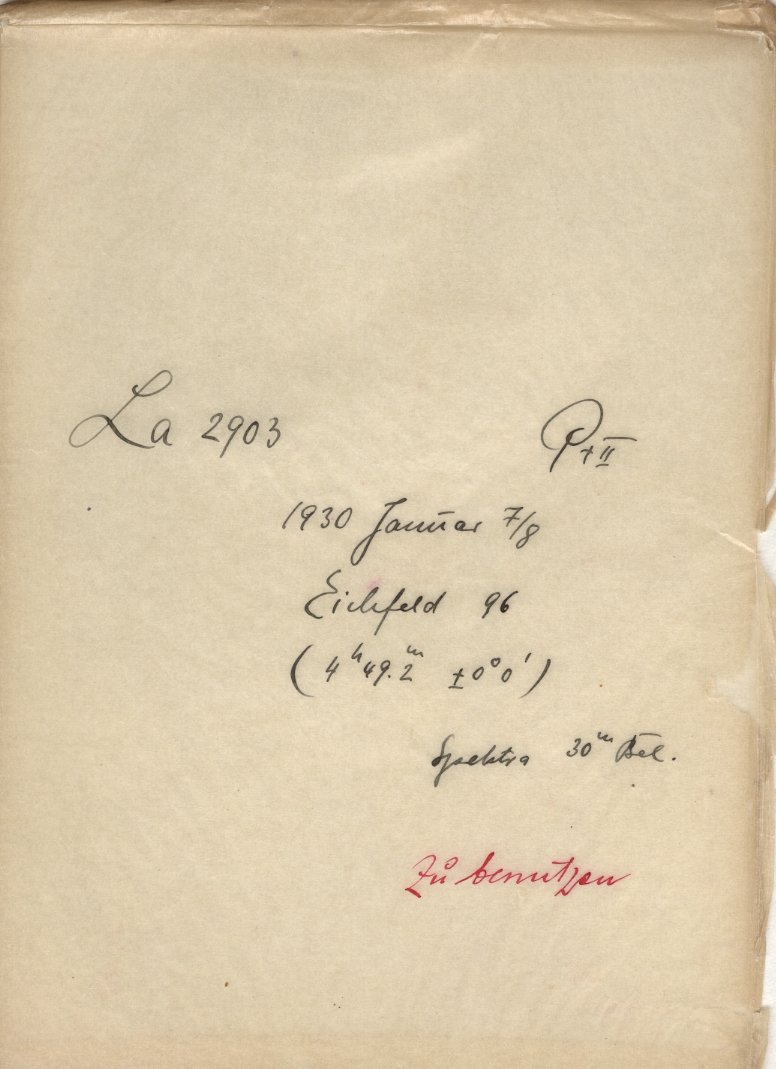 La 2903 P+II
1930 Januar 7/8
Eichfeld 96
(4ʰ49.2ᵐ ±0°0')
Spektra 30ᵐ Bel.
Zu benutzen